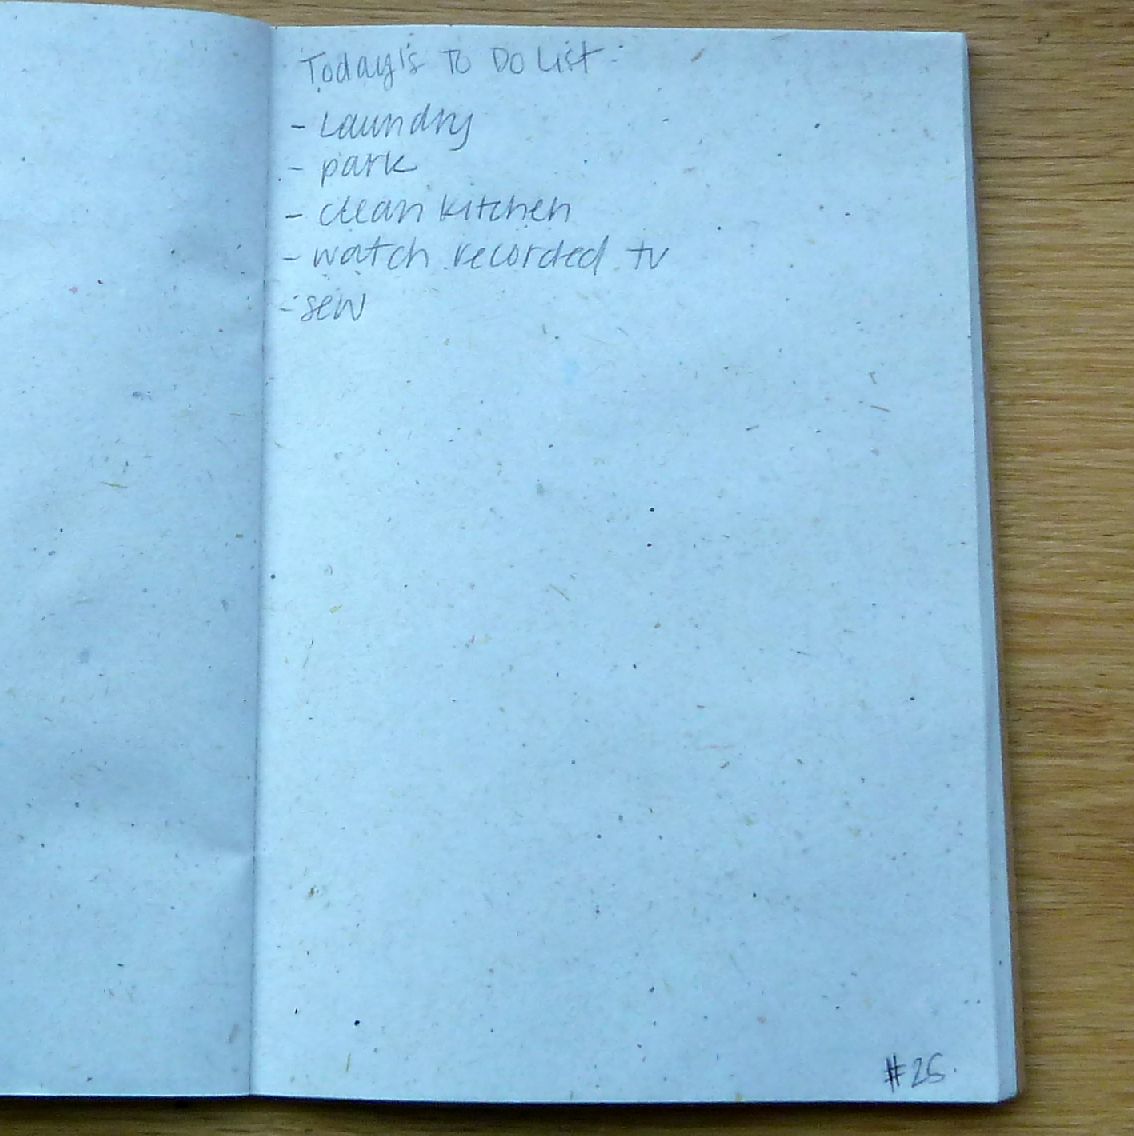 Today's To Do List:
- Laundry
- park
- clean kitchen
- watch recorded tv
- sew
#25